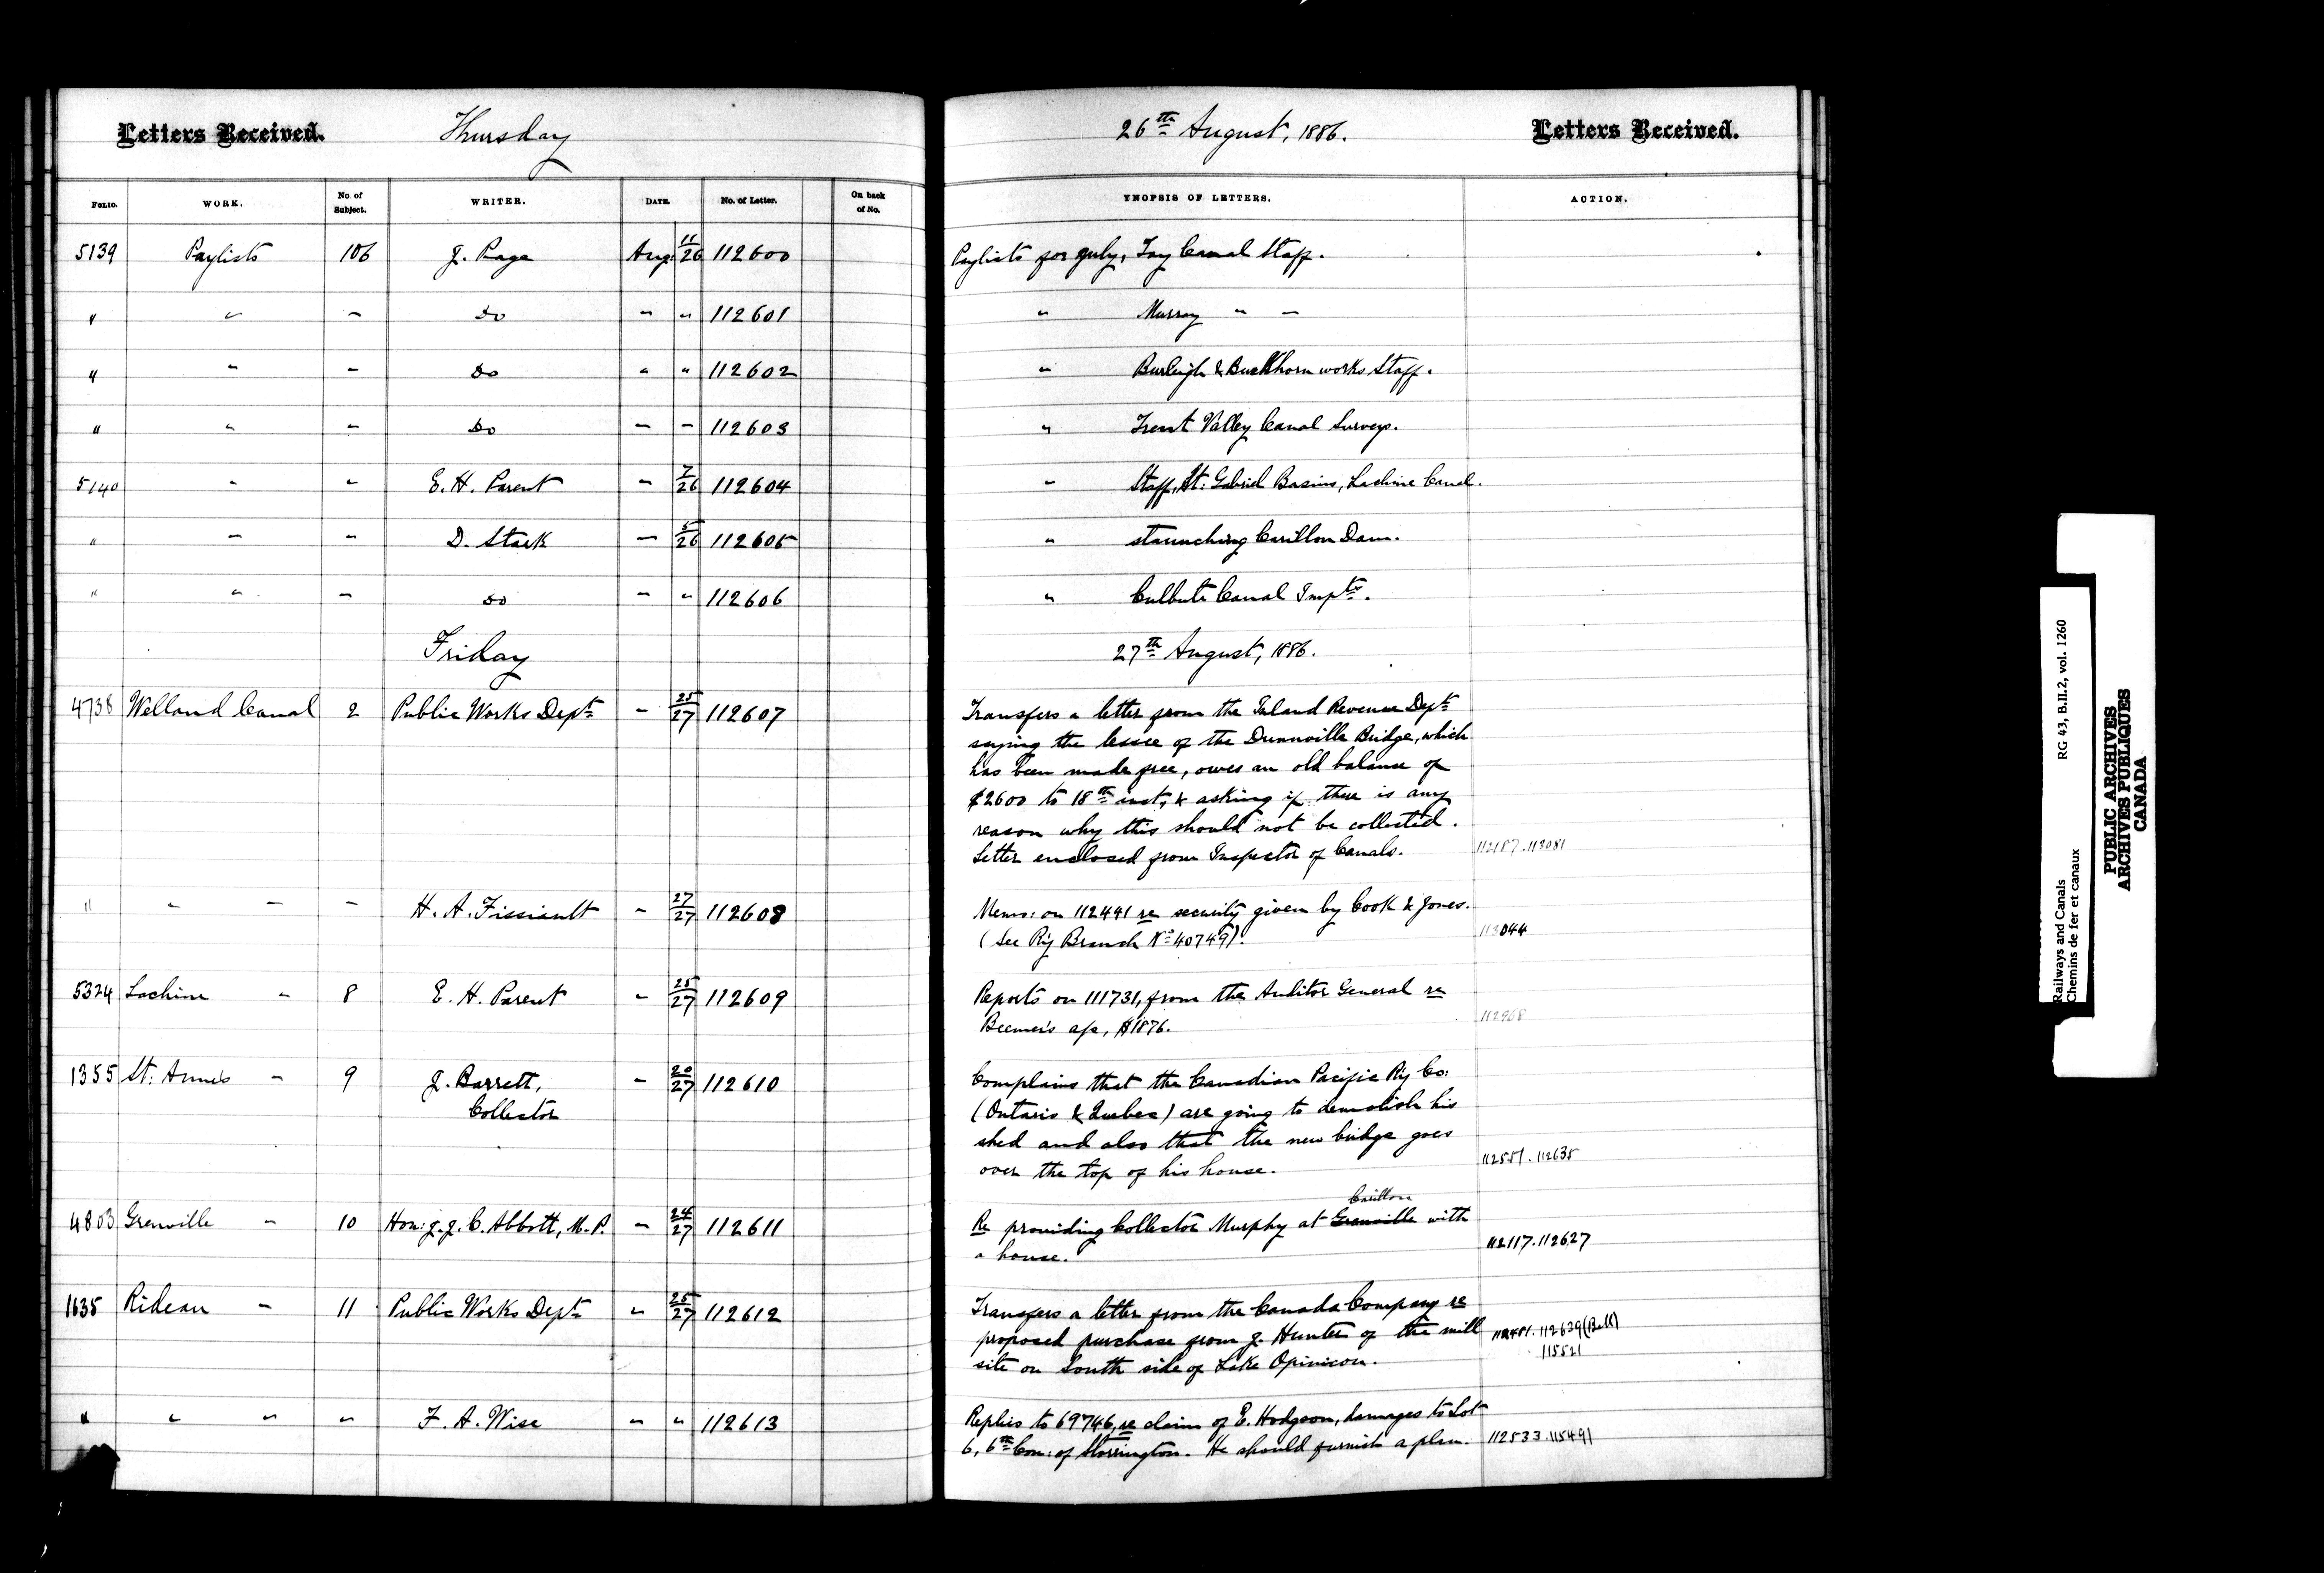 Letters Received. Thursday 26th August, 1886. Letters Received.
FOLIO. WORK. No. of Subject. WRITER. DATE. No. of Letter. On back of No. SYNOPSIS OF LETTERS. ACTION.
5139 Paylists 106 J. Page Aug. 11/26 112600 Paylists for July, Tay Canal Staff.
" " " Do " " 112601 " Murray " "
" " " Do " " 112602 " Burleigh & Buckhorn works Staff.
" " " Do " " 112603 " Trent Valley Canal Surveys.
5140 " " E. H. Parent " 7/26 112604 " Staff, St: Gabriel Basins, Lachine Canal.
" " " D. Stark " 5/26 112605 " staunching Carillon Dam.
" " " Do " " 112606 " Culbute Canal Impts.
Friday 27th August, 1886.
4738 Welland Canal 2 Public Works Dept " 25/27 112607 Transfers a letter from the Inland Revenue Dept
saying the lessee of the Dunnville Bridge, which
has been made free, owes an old balance of
$2600 to 18th inst, & asking if there is any
reason why this should not be collected.
Letter enclosed from Inspector of Canals. 112187. 113081
" " " " H. A. Fissiault " 27/27 112608 Memo: on 112441 re security given by Cook & Jones.
(See Ry Branch No 40749). 113044
5324 Lachine " 8 E. H. Parent " 25/27 112609 Reports on 111731, from the Auditor General re
Beemer's a/c, $1876. 112968
1355 St: Anne's " 9 J. Barrett, " 20/27 112610 Complains that the Canadian Pacific Ry Co:
Collector (Ontario & Quebec) are going to demolish his
shed and also that the new bridge goes
over the top of his house. 112551. 112635
Carillon
4803 Grenville " 10 Hon: J. J. C. Abbott, M.P. " 24/27 112611 Re providing Collector Murphy at Grenville with
a house. 112117. 112627
1635 Rideau " 11 Public Works Dept " 25/27 112612 Transfers a letter from the Canada Company re
proposed purchase from J. Hunter of the mill 112481. 112639 (Bell)
site on South side of Lake Opinicon. 115521
" " " " F. A. Wise " " 112613 Replies to 69746, re claim of E. Hodgson, damages to Lot
6, 6th Con: of Storrington. He should furnish a plan. 112533. 115491
Railways and Canals RG 43, B.II.2, vol. 1260
Chemins de fer et canaux
PUBLIC ARCHIVES
ARCHIVES PUBLIQUES
CANADA